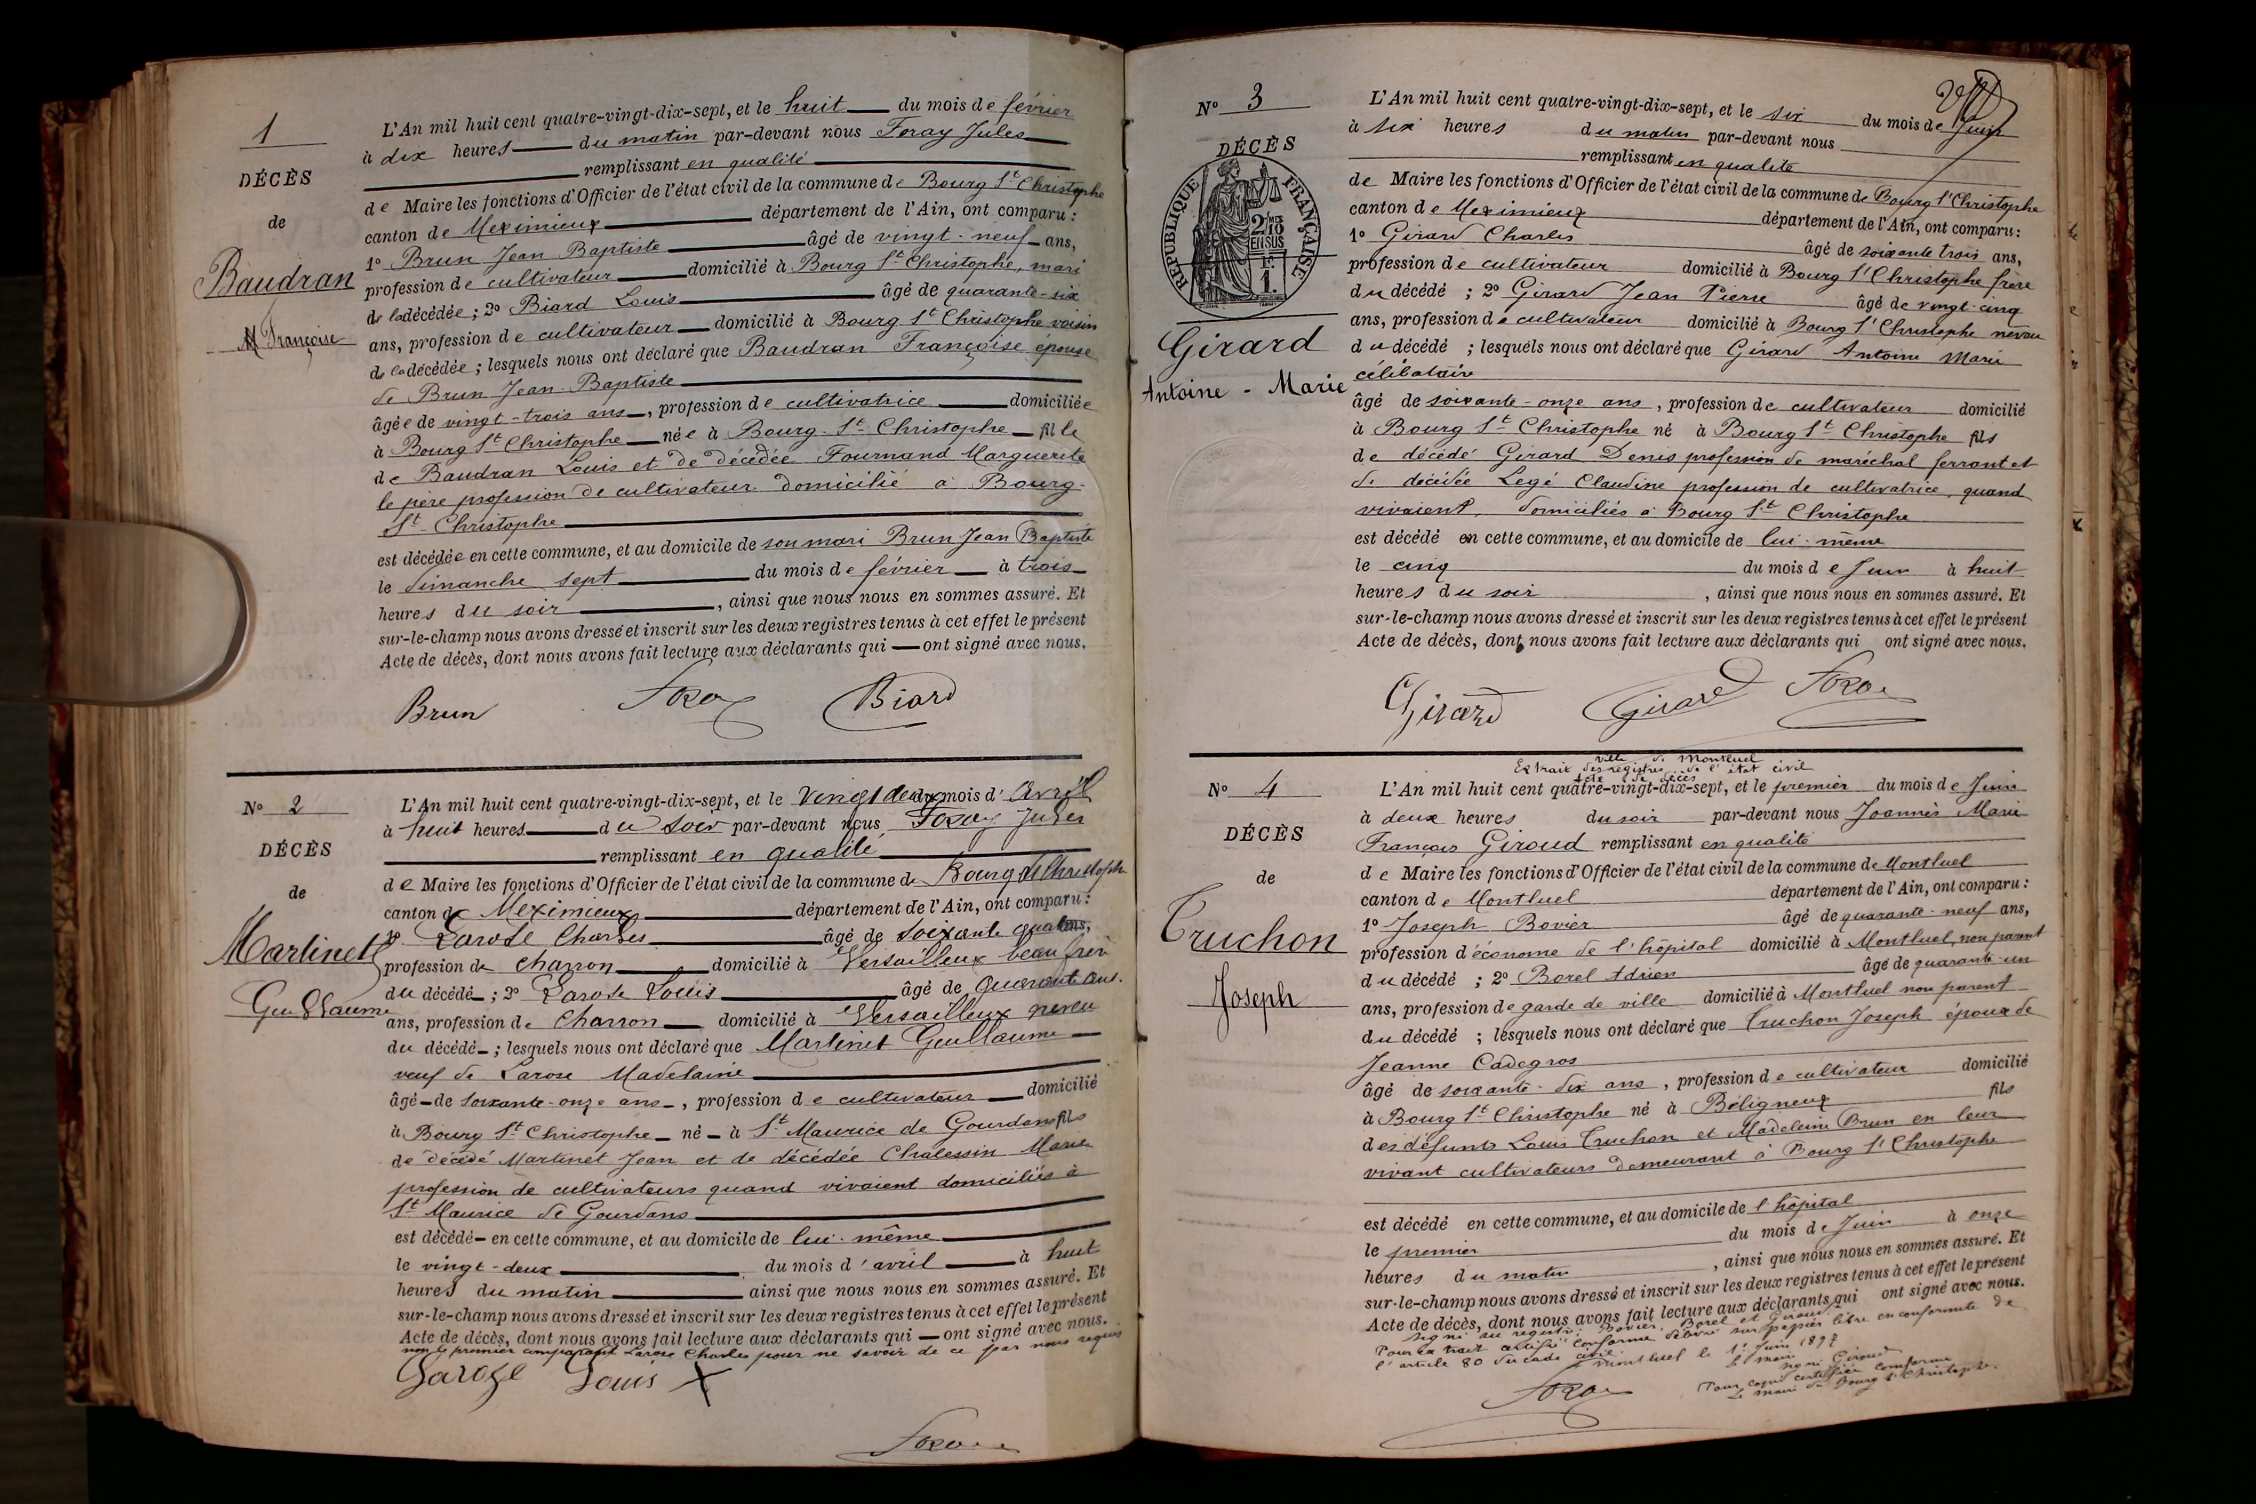 1
DÉCÈS
de
Baudran
Françoise
L'An mil huit cent quatre-vingt-dix-sept, et le huit du mois de février
à dix heures du matin par-devant nous Foray Jules
remplissant en qualité
de Maire les fonctions d'Officier de l'état civil de la commune de Bourg St Christophe
canton de Meximieux département de l'Ain, ont comparu :
1º Brun Jean Baptiste âgé de vingt-neuf ans,
profession de cultivateur domicilié à Bourg St Christophe, mari
de la décédée ; 2º Biard Louis âgé de quarante-six
ans, profession de cultivateur domicilié à Bourg St Christophe voisin
de la décédée ; lesquels nous ont déclaré que Baudran Françoise épouse
de Brun Jean-Baptiste
âgée de vingt-trois ans, profession de cultivatrice domiciliée
à Bourg St Christophe née à Bourg-St-Christophe fille
de Baudran Louis et de décédée Fournand Marguerite
le père profession de cultivateur domicilié à Bourg-
St-Christophe
est décédée en cette commune, et au domicile de son mari Brun Jean Baptiste
le dimanche sept du mois de février à trois
heures du soir, ainsi que nous nous en sommes assuré. Et
sur-le-champ nous avons dressé et inscrit sur les deux registres tenus à cet effet le présent
Acte de décès, dont nous avons fait lecture aux déclarants qui ont signé avec nous.
Brun Foray Biard
Nº 2
DÉCÈS
de
Martinet
Guillaume
L'An mil huit cent quatre-vingt-dix-sept, et le vingt deux du mois d'avril
à huit heures du soir par-devant nous Foray Jules
remplissant en qualité
de Maire les fonctions d'Officier de l'état civil de la commune de Bourg St Christoph
canton de Meximieux département de l'Ain, ont comparu :
1º Larose Charles âgé de soixante quatre ans,
profession de charron domicilié à Versailleux beau frère
du décédé ; 2º Larose Louis âgé de quarante ans.
ans, profession de charron domicilié à Versailleux neveu
du décédé ; lesquels nous ont déclaré que Martinet Guillaume
veuf de Larose Madelaine
âgé de soixante-onze ans, profession de cultivateur domicilié
à Bourg St Christophe né à St Maurice de Gourdans fils
de décédé Martinet Jean et de décédée Chalessin Marie
profession de cultivateurs quand vivaient domiciliés à
St Maurice de Gourdans
est décédé en cette commune, et au domicile de lui-même
le vingt-deux du mois d'avril à huit
heures du matin ainsi que nous nous en sommes assuré. Et
sur-le-champ nous avons dressé et inscrit sur les deux registres tenus à cet effet le présent
Acte de décès, dont nous avons fait lecture aux déclarants qui ont signé avec nous.
non le premier comparant Larose Charles pour ne savoir de ce par nous requis
Larose Louis X
Foray
Nº 3
DÉCÈS
RÉPUBLIQUE FRANÇAISE
2/10 EN SUS
F. 1.
Girard
Antoine - Marie
L'An mil huit cent quatre-vingt-dix-sept, et le six du mois de Juin
à six heures du matin par-devant nous
remplissant en qualité
de Maire les fonctions d'Officier de l'état civil de la commune de Bourg St Christophe
canton de Meximieux département de l'Ain, ont comparu :
1º Girard Charles âgé de soixante trois ans,
profession de cultivateur domicilié à Bourg St Christophe frère
du décédé ; 2º Girard Jean Pierre âgé de vingt-cinq
ans, profession de cultivateur domicilié à Bourg St Christophe neveu
du décédé ; lesquels nous ont déclaré que Girard Antoine Marie
célibataire
âgé de soixante-onze ans, profession de cultivateur domicilié
à Bourg St Christophe né à Bourg St Christophe fils
de décédé Girard Denis profession de maréchal ferrant et
de décédée Legé Claudine profession de cultivatrice, quand
vivaient, domiciliés à Bourg St Christophe
est décédé en cette commune, et au domicile de lui-même
le cinq du mois de Juin à huit
heures du soir, ainsi que nous nous en sommes assuré. Et
sur-le-champ nous avons dressé et inscrit sur les deux registres tenus à cet effet le présent
Acte de décès, dont nous avons fait lecture aux déclarants qui ont signé avec nous.
Girard Girard Foray
Nº 4
DÉCÈS
de
Truchon
Joseph
Ville de Montluel
Extrait des registres de l'état civil
Acte de décès
L'An mil huit cent quatre-vingt-dix-sept, et le premier du mois de Juin
à deux heures du soir par-devant nous Joannès Marie
François Giroud remplissant en qualité
de Maire les fonctions d'Officier de l'état civil de la commune de Montluel
canton de Montluel département de l'Ain, ont comparu :
1º Joseph Bovier âgé de quarante-neuf ans,
profession d'économe de l'hôpital domicilié à Montluel, non parent
du décédé ; 2º Borel Adrien âgé de quarante-un
ans, profession de garde de ville domicilié à Montluel non parent
du décédé ; lesquels nous ont déclaré que Truchon Joseph époux de
Jeanne Cadegros
âgé de soixante-dix ans, profession de cultivateur domicilié
à Bourg St Christophe né à Béligneux fils
des défunts Louis Truchon et Madeleine Brun en leur
vivant cultivateurs demeurant à Bourg St Christophe
est décédé en cette commune, et au domicile de l'hôpital
le premier du mois de Juin à onze
heures du matin, ainsi que nous nous en sommes assuré. Et
sur-le-champ nous avons dressé et inscrit sur les deux registres tenus à cet effet le présent
Acte de décès, dont nous avons fait lecture aux déclarants qui ont signé avec nous.
signé au registre : Bovier, Borel et Giroud.
Pour extrait certifié conforme délivré sur papier libre en conformité de
l'article 80 du code civil.
Montluel le 1er Juin 1897
le maire
signé Giroud
Pour copie certifiée conforme
Le maire de Bourg St Christophe.
Foray